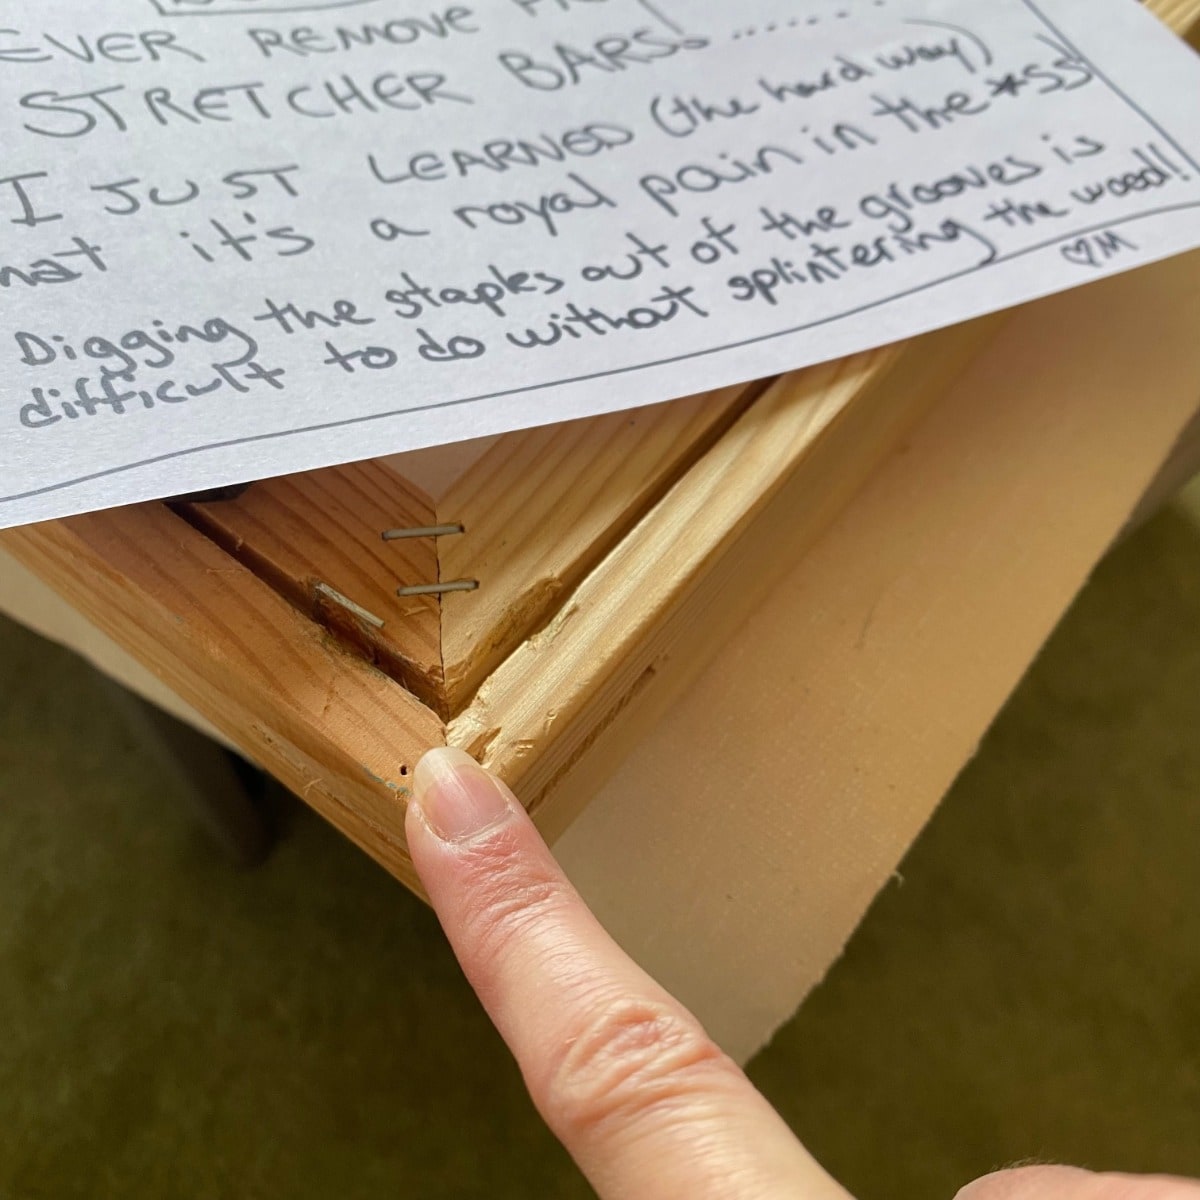 EVER REMOVE
STRETCHER BARS!.......
I JUST LEARNED (the hard way)
hat it's a royal pain in the *ss
Digging the staples out of the grooves is
difficult to do without splintering the wood!
♡M